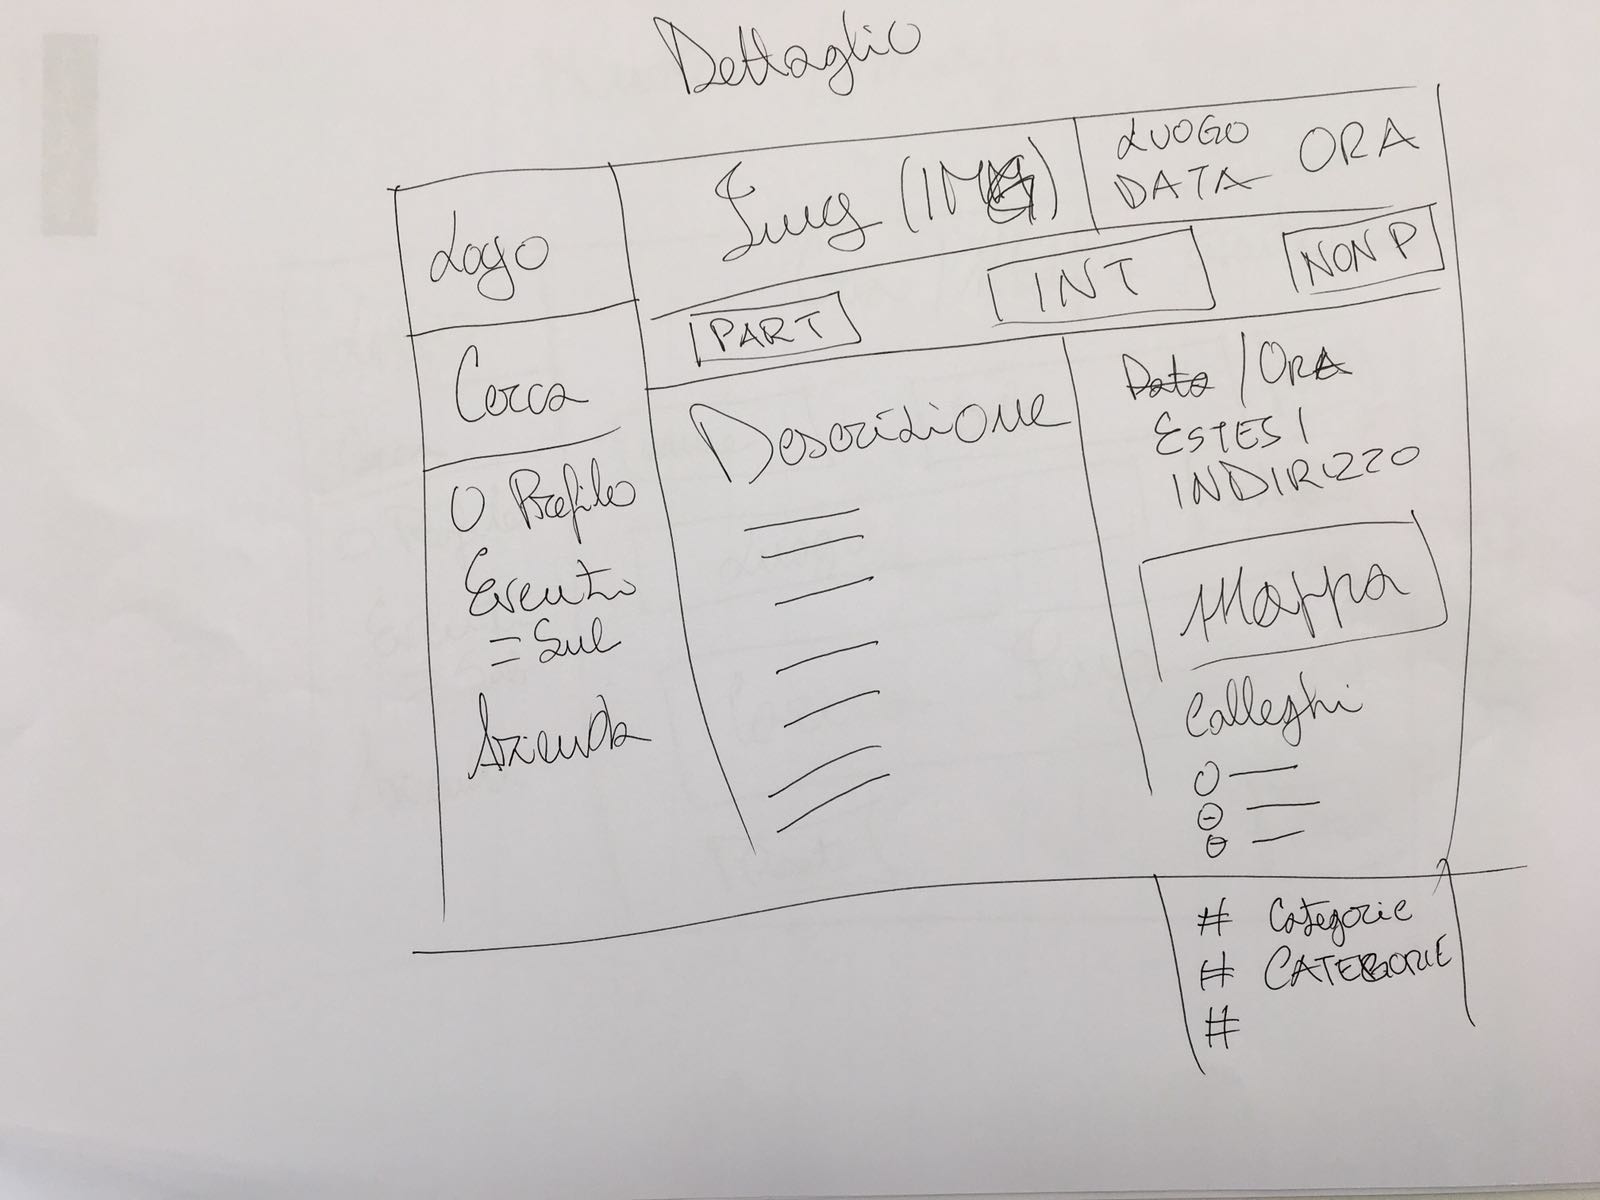 Dettaglio
Logo
Cerca
O Profilo
Evento
Azienda
Img (IMG)
LUOGO
DATA
ORA
PART
INT
NON P
Descrizione
Data / ORA
ESTESI
INDIRIZZO
Mappa
Colleghi
# Categorie
# CATEGORIE
#